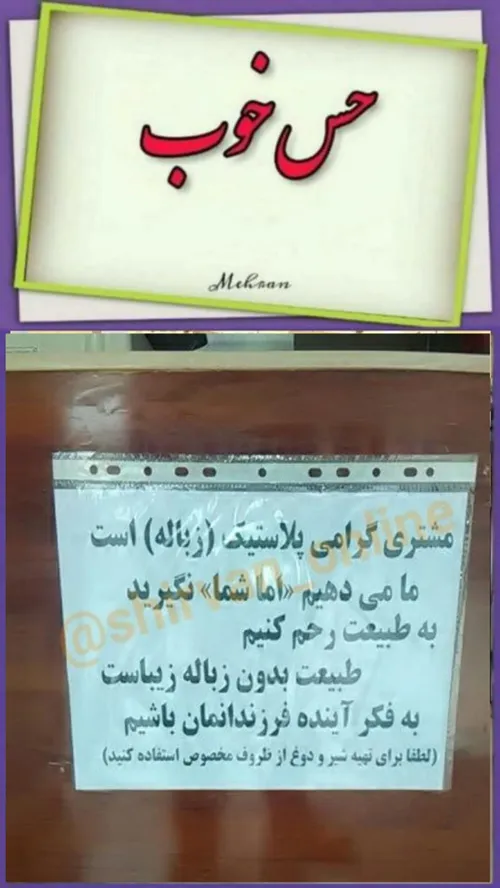 حس خوب
Mehran
مشتری گرامی پلاستیک (زباله) است
ما می دهیم «اما شما» نگیرید
به طبیعت رحم کنیم
طبیعت بدون زباله زیباست
به فکر آینده فرزندانمان باشیم
(لطفا برای تهیه شیر و دوغ از ظروف مخصوص استفاده کنید)
@shirvan_online